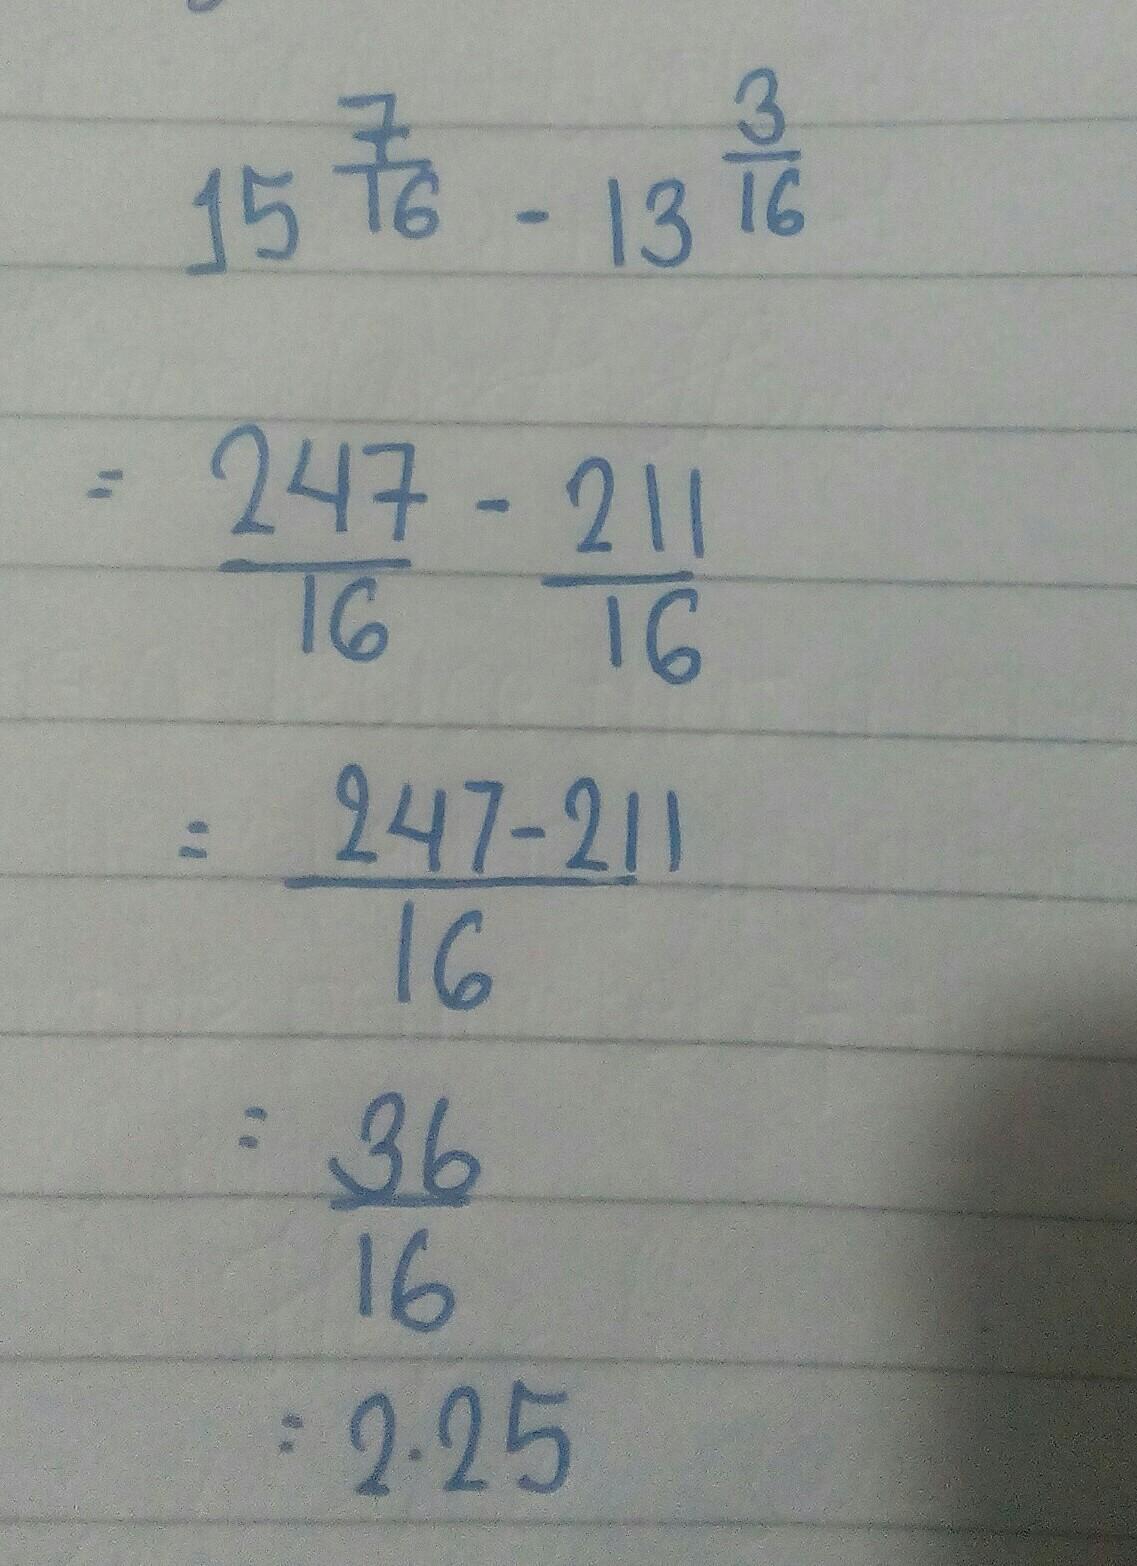 15 7/16 - 13 3/16
= 247/16 - 211/16
= 247-211/16
= 36/16
= 2.25